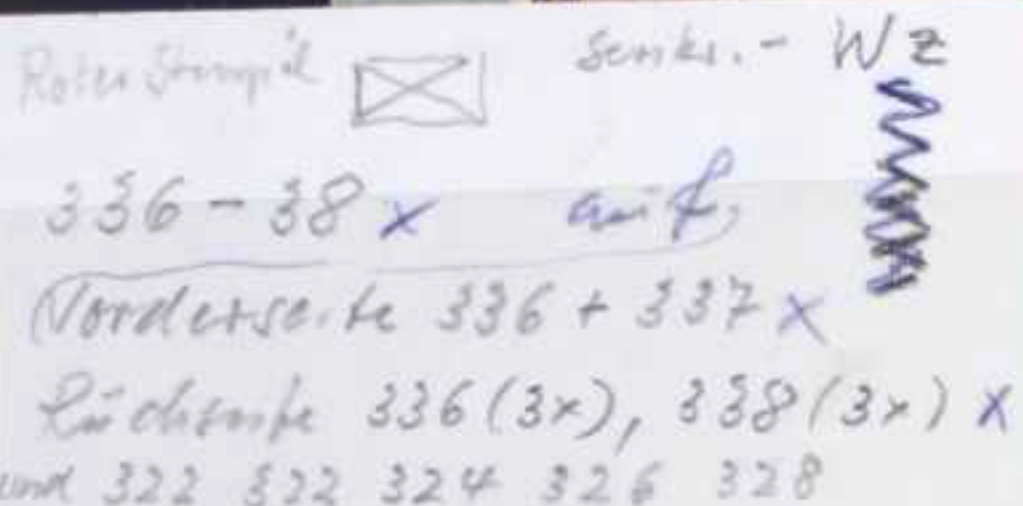 Roter Stempel senkr. - WZ
336 - 38 x auf
Vorderseite 336 + 337 x
Rückseite 336 (3x), 338 (3x) x
und 322 322 324 326 328